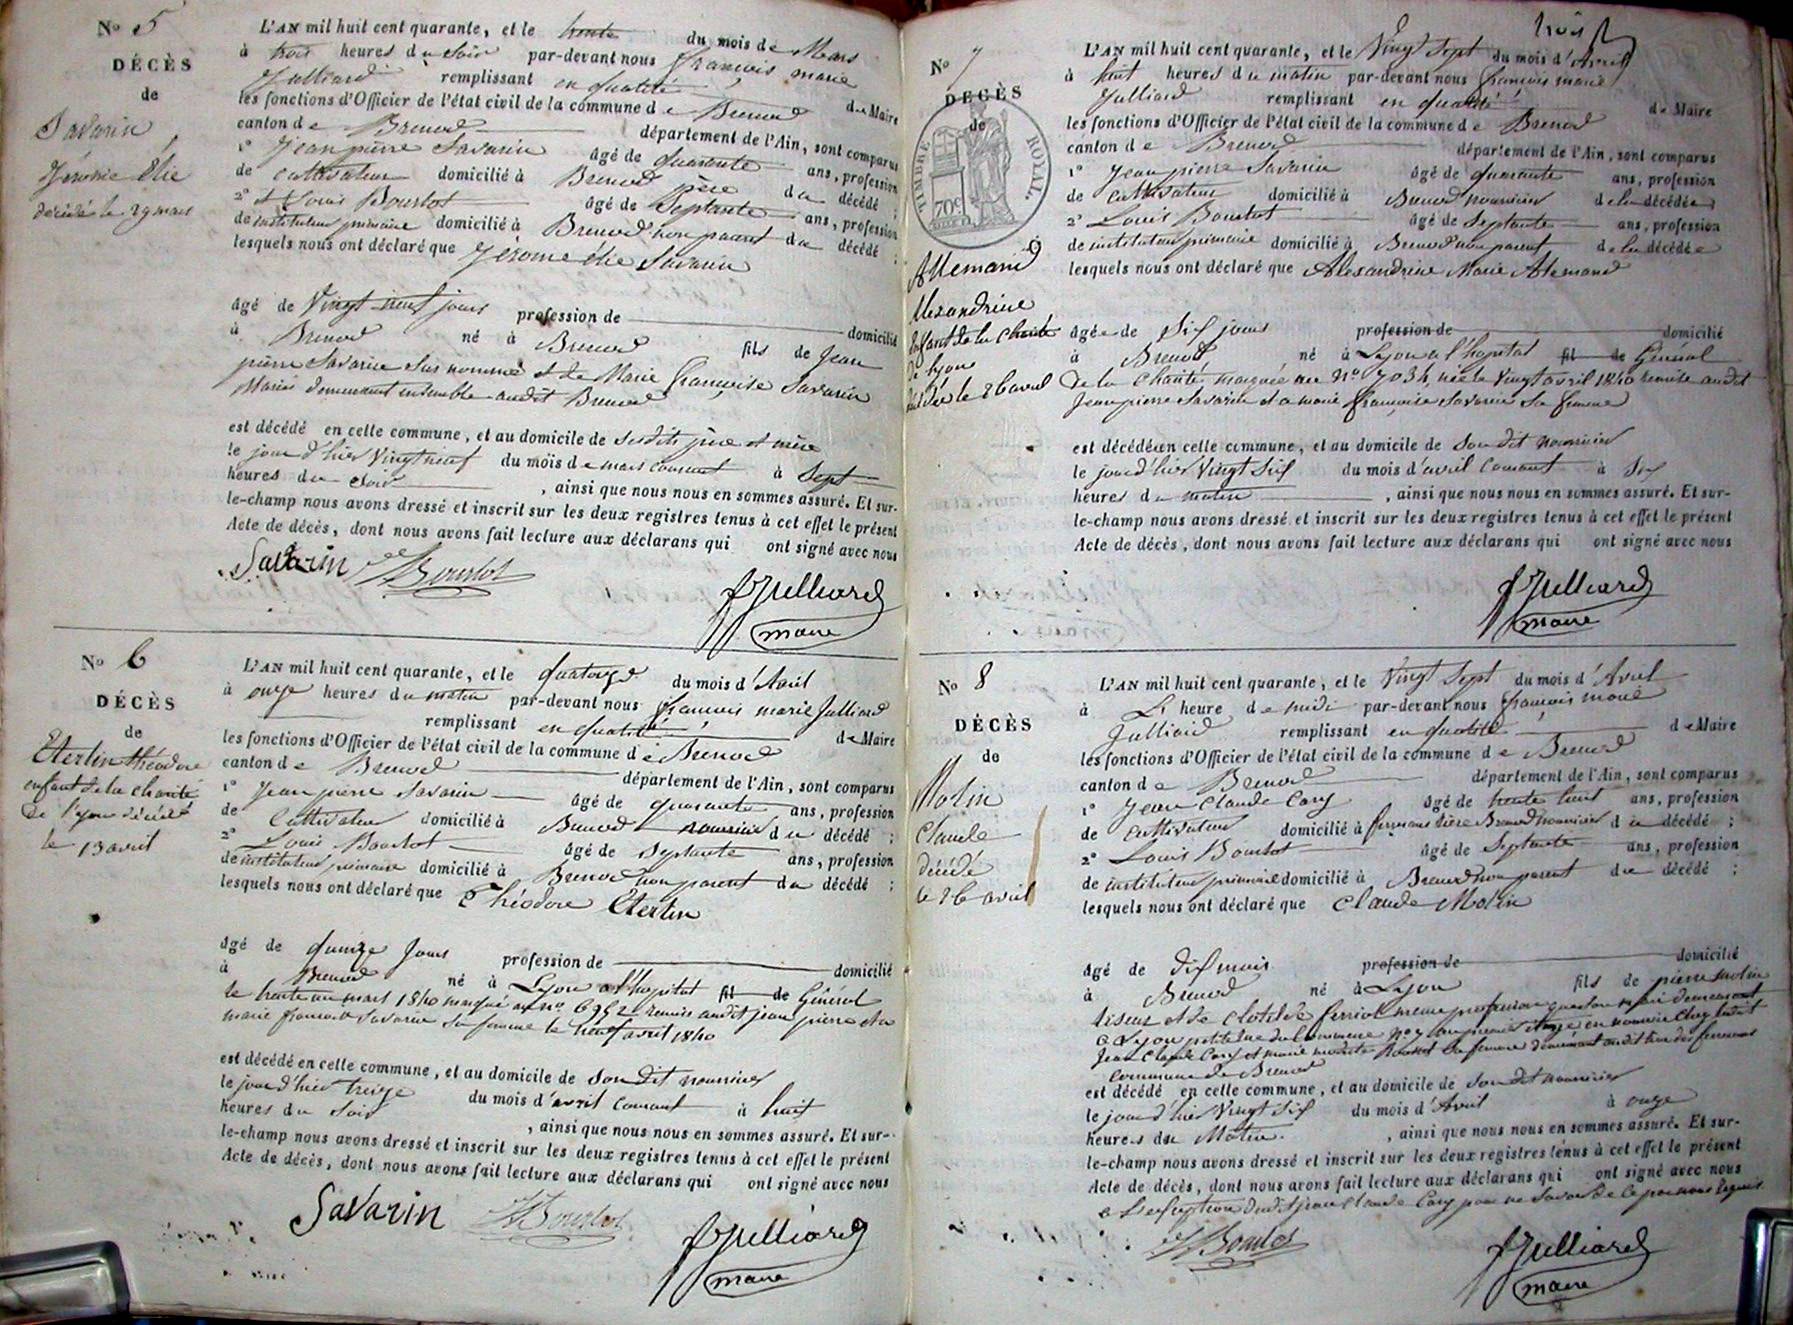 No 5
DÉCÈS
de
Savarin
Jérôme Élie
décédé le 29 mars
L'AN mil huit cent quarante, et le trente du mois de Mars
à trois heures du soir par-devant nous françois marie
Julliard remplissant en qualité de Maire
les fonctions d'Officier de l'état civil de la commune de Brenod
canton de Brenod département de l'Ain, sont comparus
1° Jean pierre Savarin âgé de quarante ans, profession
de cultivateur domicilié à Brenod père du décédé ;
2° Louis Bourlot âgé de Septante ans, profession
de instituteur primaire domicilié à Brenod non parent du décédé ;
lesquels nous ont déclaré que Jérome élie Savarin
âgé de Vingt neuf jours profession de domicilié
à Brenod né à Brenod fils de Jean
pierre Savarin sus nommé et de Marie françoise Savarin
Mariés demeurant ensemble audit Brenod
est décédé en cette commune, et au domicile de sesdits père et mère
le jour d'hier Vingt neuf du mois de mars courant à Sept
heures du soir , ainsi que nous nous en sommes assuré. Et sur-
le-champ nous avons dressé et inscrit sur les deux registres tenus à cet effet le présent
Acte de décès, dont nous avons fait lecture aux déclarans qui ont signé avec nous
Savarin Bourlot
fJulliard
maire
No 6
DÉCÈS
de
Eterlin théodore
enfant de la charité
de Lyon décédé
le 13 avril
L'AN mil huit cent quarante, et le quatorze du mois d'Avril
à onze heures du matin par-devant nous françois marie Julliard
remplissant en qualité de Maire
les fonctions d'Officier de l'état civil de la commune de Brenod
canton de Brenod département de l'Ain, sont comparus
1° Jean pierre Savarin âgé de quarante ans, profession
de Cultivateur domicilié à Brenod nourricier du décédé ;
2° Louis Bourlot âgé de Septante ans, profession
de instituteur primaire domicilié à Brenod non parent du décédé ;
lesquels nous ont déclaré que Théodore Eterlin
âgé de quinze Jours profession de domicilié
à Brenod né à Lyon a l'hopital fil de Général
le trente un mars 1840 marqué au no. 6952 remis audit jean pierre et a
marie françoise Savarin sa femme le neuf avril 1840
est décédé en cette commune, et au domicile de son dit nourricier
le jour d'hier treize du mois d'avril courant à huit
heures du Soir , ainsi que nous nous en sommes assuré. Et sur-
le-champ nous avons dressé et inscrit sur les deux registres tenus à cet effet le présent
Acte de décès, dont nous avons fait lecture aux déclarans qui ont signé avec nous
Savarin Bourlot
fJulliard
maire
trois
No 7
DÉCÈS
de
TIMBRE ROYAL.
70c
Allemand
Alexandrine
Enfant de la charité
de lyon
décédée le 26 avril
L'AN mil huit cent quarante, et le Vingt Sept du mois d'Avril
à huit heures du matin par-devant nous françois marie
Julliard remplissant en qualité de Maire
les fonctions d'Officier de l'état civil de la commune de Brenod
canton de Brenod département de l'Ain, sont comparus
1° Jean pierre Savarin âgé de quarante ans, profession
de cultivateur domicilié à Brenod nourricier de la décédée
2° Louis Bourlot âgé de Septante ans, profession
de instituteur primaire domicilié à Brenod non parent de la décédée
lesquels nous ont déclaré que Alexandrine Marie Alemand
âgée de Six jours profession de domicilié
à Brenod né à Lyon a l'hopital fil de Général
De la Charité marquée au No. 7034, née le Vingt avril 1840 remise audit
Jean pierre Savarin et a marie françoise Savarin Sa femme
est décédée en cette commune, et au domicile de Son dit nourricier
le jour d'hier Vingt Six du mois d'avril Courant à Six
heures du matin , ainsi que nous nous en sommes assuré. Et sur-
le-champ nous avons dressé et inscrit sur les deux registres tenus à cet effet le présent
Acte de décès, dont nous avons fait lecture aux déclarans qui ont signé avec nous
fJulliard
maire
No 8
DÉCÈS
de
Molin
Claude
décédé
le 26 avril
L'AN mil huit cent quarante, et le Vingt Sept du mois d'Avril
à L heure de midi par-devant nous françois marie
Julliard remplissant en qualité de Maire
les fonctions d'Officier de l'état civil de la commune de Brenod
canton de Brenod département de l'Ain, sont comparus
1° Jean Claude Cary âgé de trente huit ans, profession
de Cultivateur domicilié à Brenod nourricier du décédé ;
2° Louis Bourlot âgé de Septante ans, profession
de instituteur primaire domicilié à Brenod non parent du décédé ;
lesquels nous ont déclaré que Claude Molin
âgé de dix mois profession de domicilié
à Brenod né à Lyon fils de pierre Molin
liseur et de Clotilde ferriol meme profession que son mari demeurant
a Lyon petite rue No. 7 en nourrice chez ledit
Jean Claude Cary et marie sa femme demeurant
commune de Brenod
est décédé en cette commune, et au domicile de son dit nourricier
le jour d'hier Vingt Six du mois d'Avril à onze
heures du Matin. , ainsi que nous nous en sommes assuré. Et sur-
le-champ nous avons dressé et inscrit sur les deux registres tenus à cet effet le présent
Acte de décès, dont nous avons fait lecture aux déclarans qui ont signé avec nous
a L'exception dudit jean Claude Cary pour ne Savoir de ce par nous requis
Bourlot
fJulliard
maire